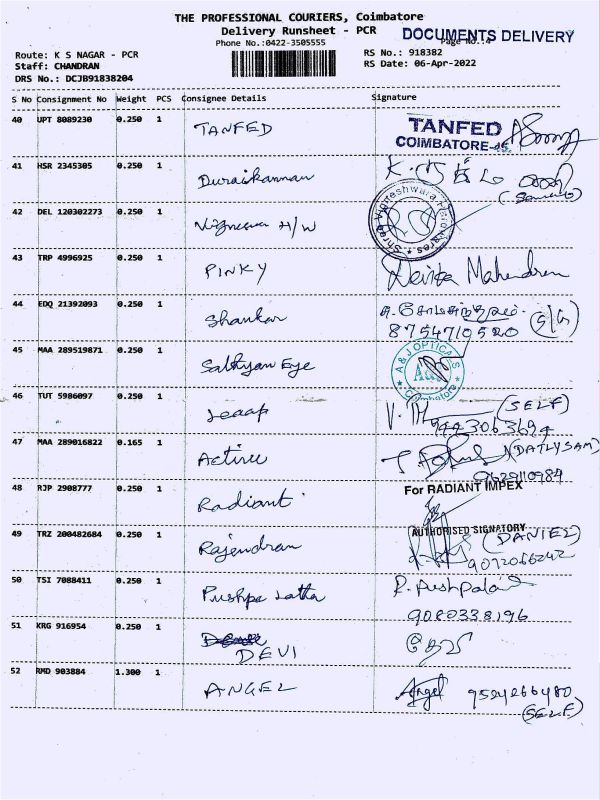 THE PROFESSIONAL COURIERS, Coimbatore
Delivery Runsheet - PCR
DOCUMENTS DELIVERY
Phone No.:0422-3505555
Page No.:4
Route: K S NAGAR - PCR
RS No.: 918382
Staff: CHANDRAN
RS Date: 06-Apr-2022
DRS No.: DCJB91838204
S No Consignment No Weight PCS Consignee Details Signature
40 UPT 8089230 0.250 1 TANFED TANFED
COIMBATORE-45.
41 HSR 2345305 0.250 1 Duraikannan
42 DEL 120302273 0.250 1 Vigneswa H/W Shree Vigneshwara Hardwares
43 TRP 4996925 0.250 1 PINKY Mahendran
44 EDQ 21392093 0.250 1 Shankar
8754710520
45 MAA 289519871 0.250 1 Sathyam Eye A&J OPTICALS Coimbatore
46 TUT 5986097 0.250 1 (SELF)
9443063694
47 MAA 289016822 0.165 1
9629110984
48 RJP 2908777 0.250 1 Radiant For RADIANT IMPEX
AUTHORISED SIGNATORY
49 TRZ 200482684 0.250 1 Rajendran (DANIEL)
9092066242
50 TSI 7088411 0.250 1 Pushpa Latha R. Pushpalatha
9080338196
51 KRG 916954 0.250 1 DEVI தேவி
52 RMD 903884 1.300 1 ANGEL Angel 9524266480
(SELF)